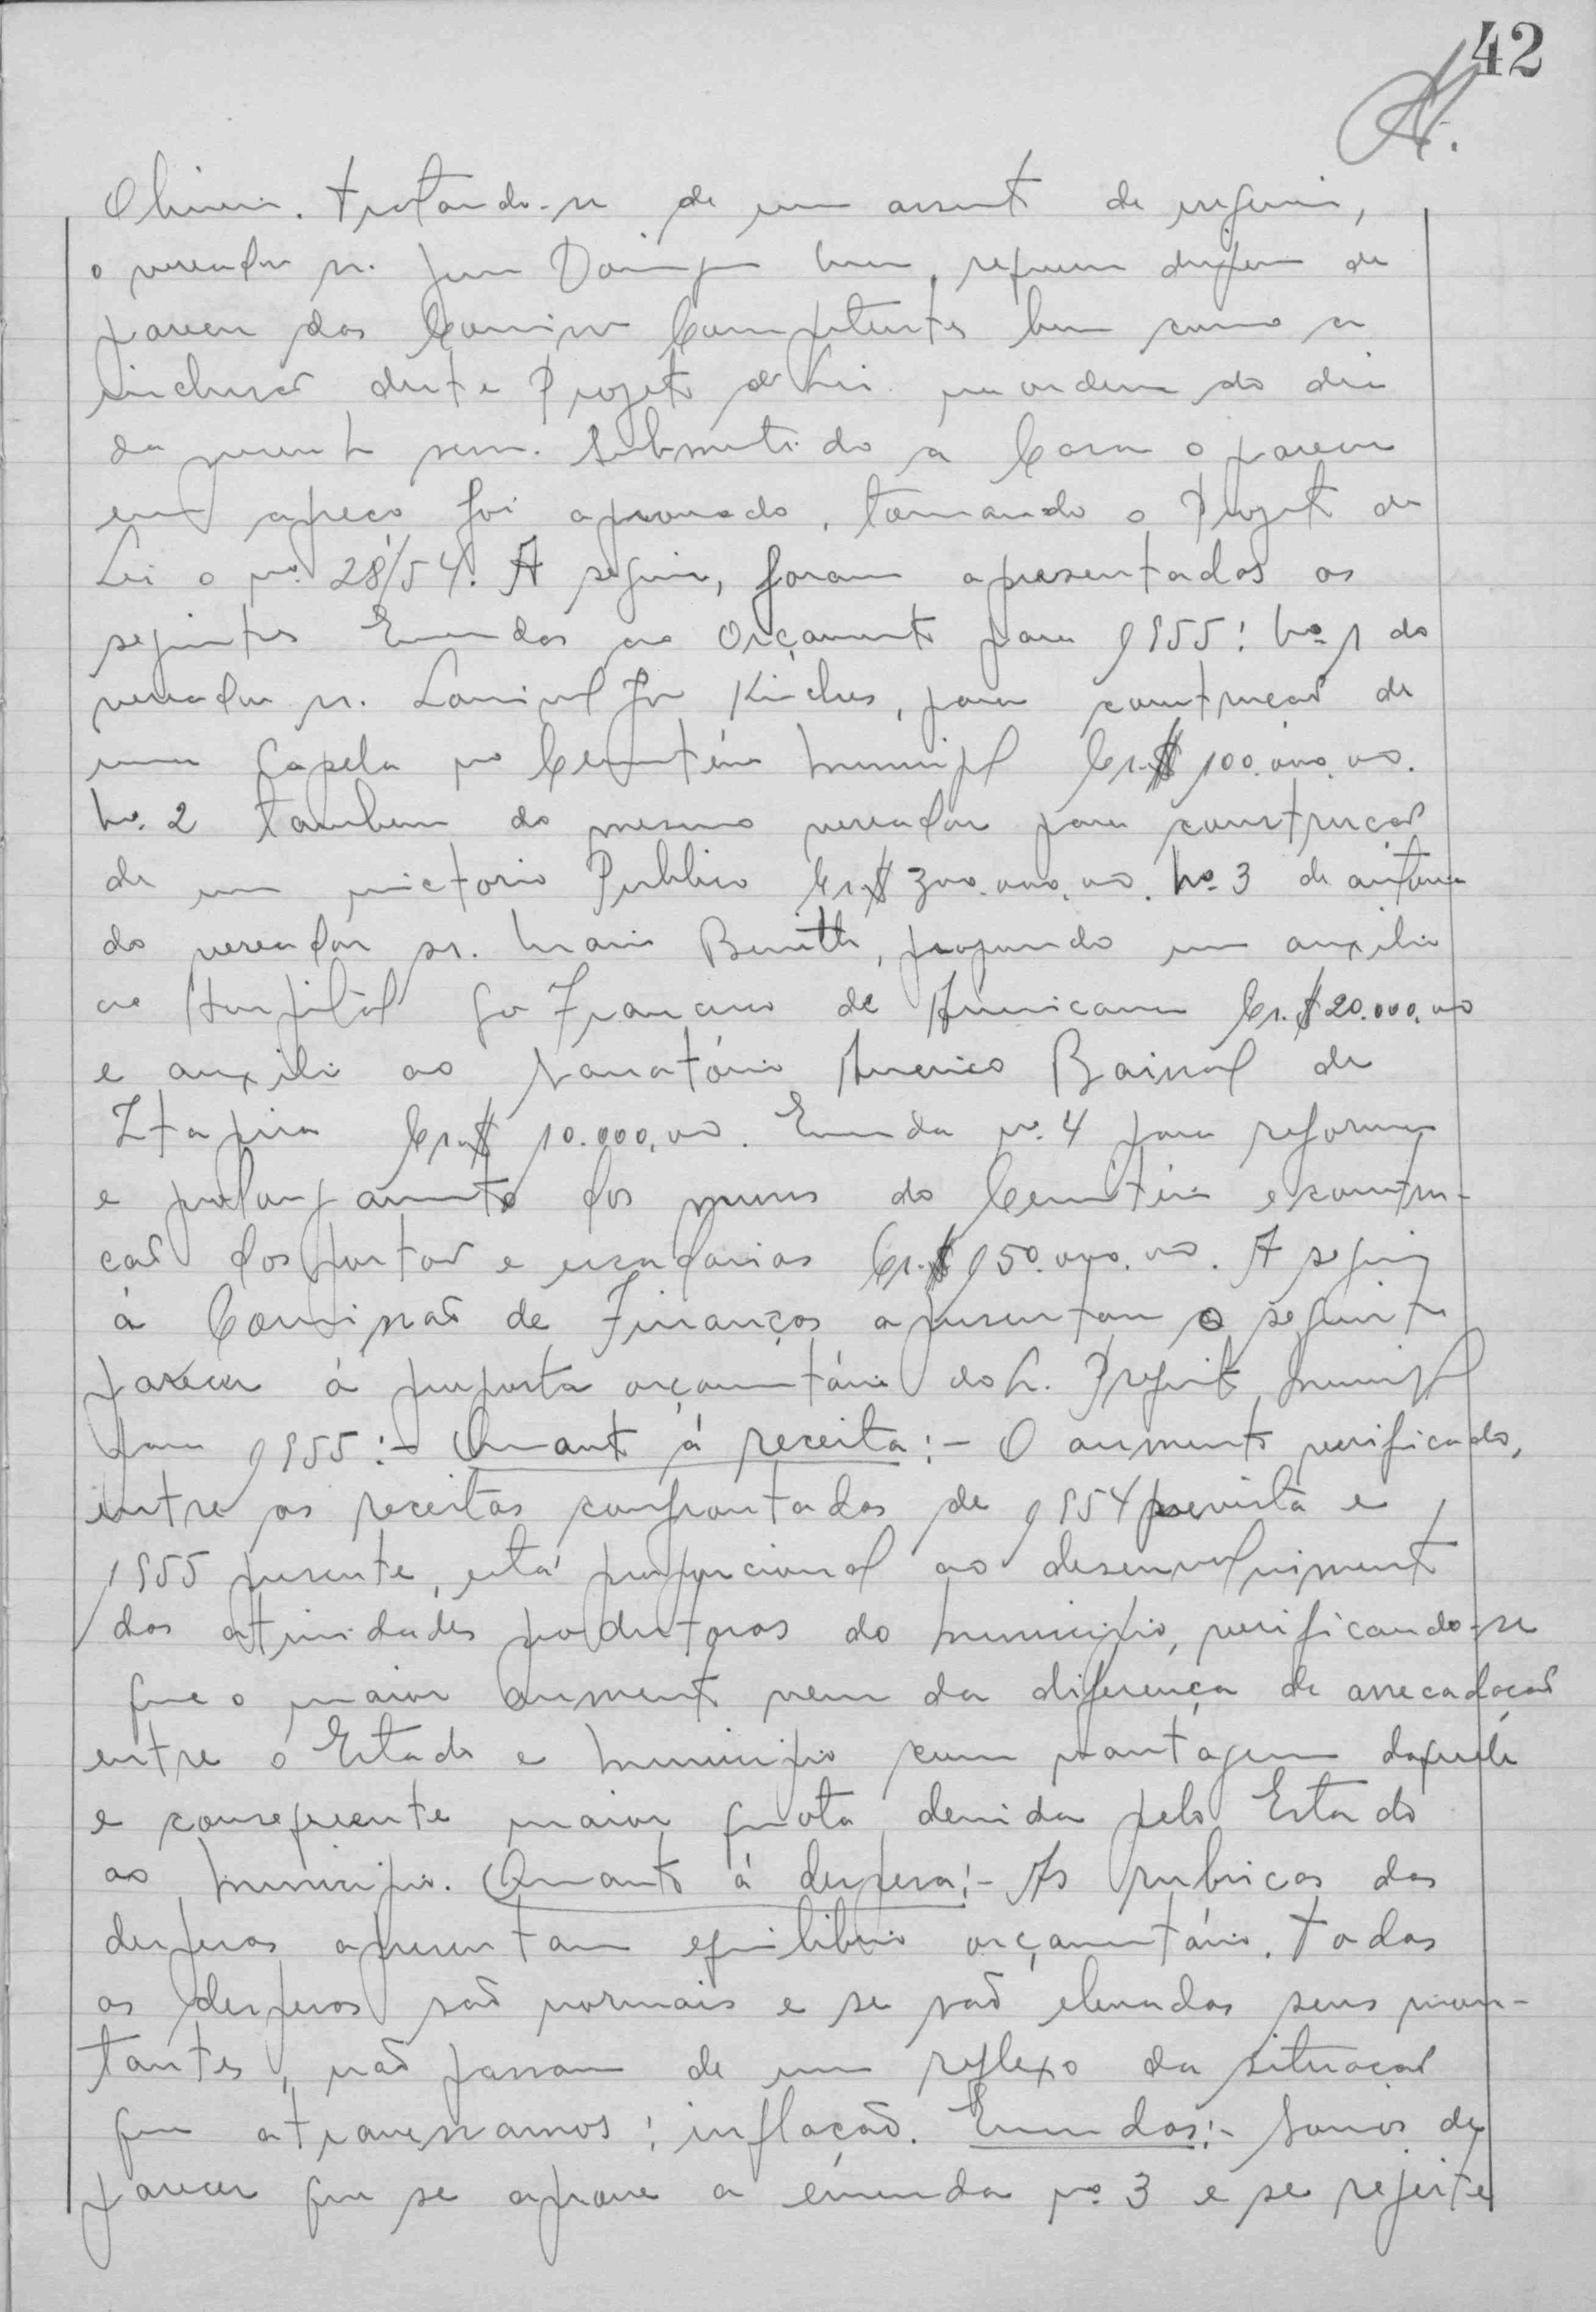 42
Oliveira. Tratando-se de um assunto de urgencia,
o vereador sr. requereu dispensa de
parecer das Comissões Competentes bem como a
inclusão deste Projeto de Lei na ordem do dia
da presente sessão. Submetido a Casa o parecer
em apreço foi aprovado, tomando o Projeto de
Lei o nº 28/54. A seguir, foram apresentadas as
seguintes Emendas ao Orçamento para 1955: Nº 1 do
vereador sr. Lourival José para construção de
uma Capela no Cemitério Municipal Cr.$ 100.000,00.
Nº 2 tambem do mesmo vereador para construção
de um mictorio Publico Cr.$ 300.000,00. Nº 3 de autoria
do vereador sr. Mario propondo um auxilio
ao Hospital São Francisco de Americana Cr.$ 20.000,00
e auxilio ao Sanatório Americo Bairral de
Itapira Cr.$ 10.000,00. Emenda nº 4 para reforma
e prolongamento dos muros do Cemitério e constru-
ção dos portões e escadarias Cr.$ 150.000,00. A seguir
á Comissão de Finanças apresentou o seguinte
parecer á proposta orçamentária do Sr. Prefeito Municipal
para 1955:- Quanto á receita:- O aumento verificado,
entre as receitas confrontadas de 1954 prevista e
1955 presente, está proporcional ao desenvolvimento
das atividades produtoras do Municipio, verificando-se
que o maior aumento vem da diferença de arrecadação
entre o Estado e Municipio com vantagem daquele
e consequente maior quota devida pelo Estado
ao Municipio. Quanto á despesa:- As rubricas das
despesas apresentam equilibrio orçamentário. Todas
as despesas são normais e se são elevadas seus mon-
tantes, não passam de um reflexo da situação
que atravessamos: inflação. Emendas:- Somos de
parecer que se aprove a emenda nº 3 e se rejeite